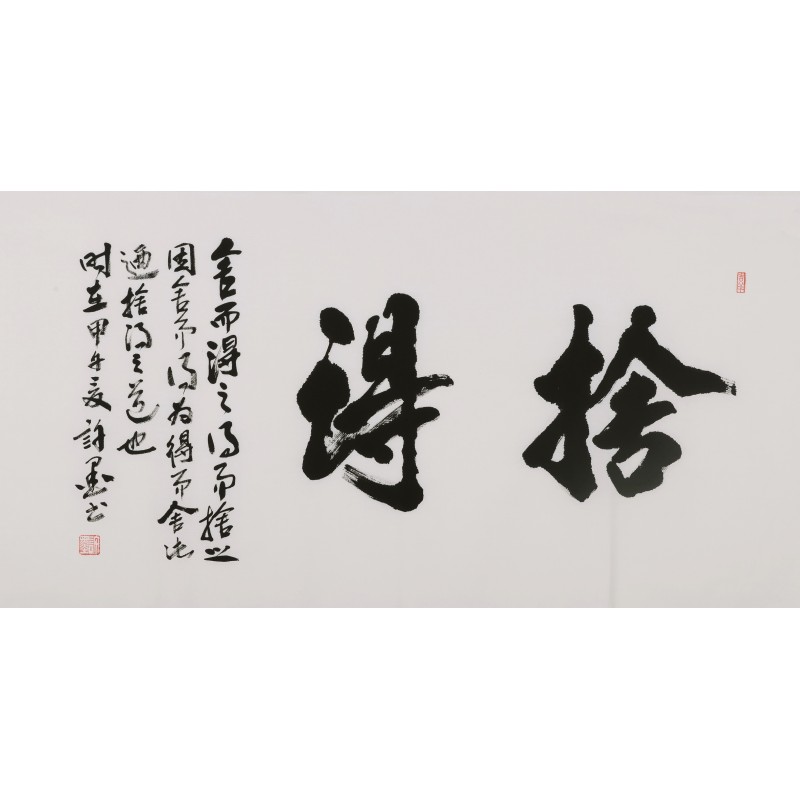 捨得
舍而得之得而捨之
因舍而得為得而舍此
捨得之道也
時在甲午夏許墨书